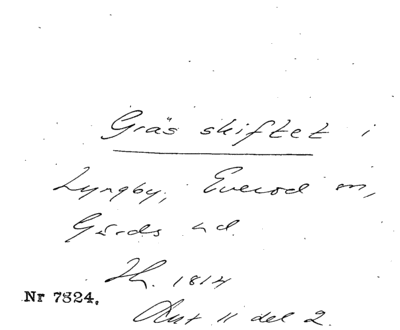 Gräs skiftet i
Lyngby, Everöd m,
Gärds hd.
Hh. 1814
Nr 7824.
Akt 11 del 2.